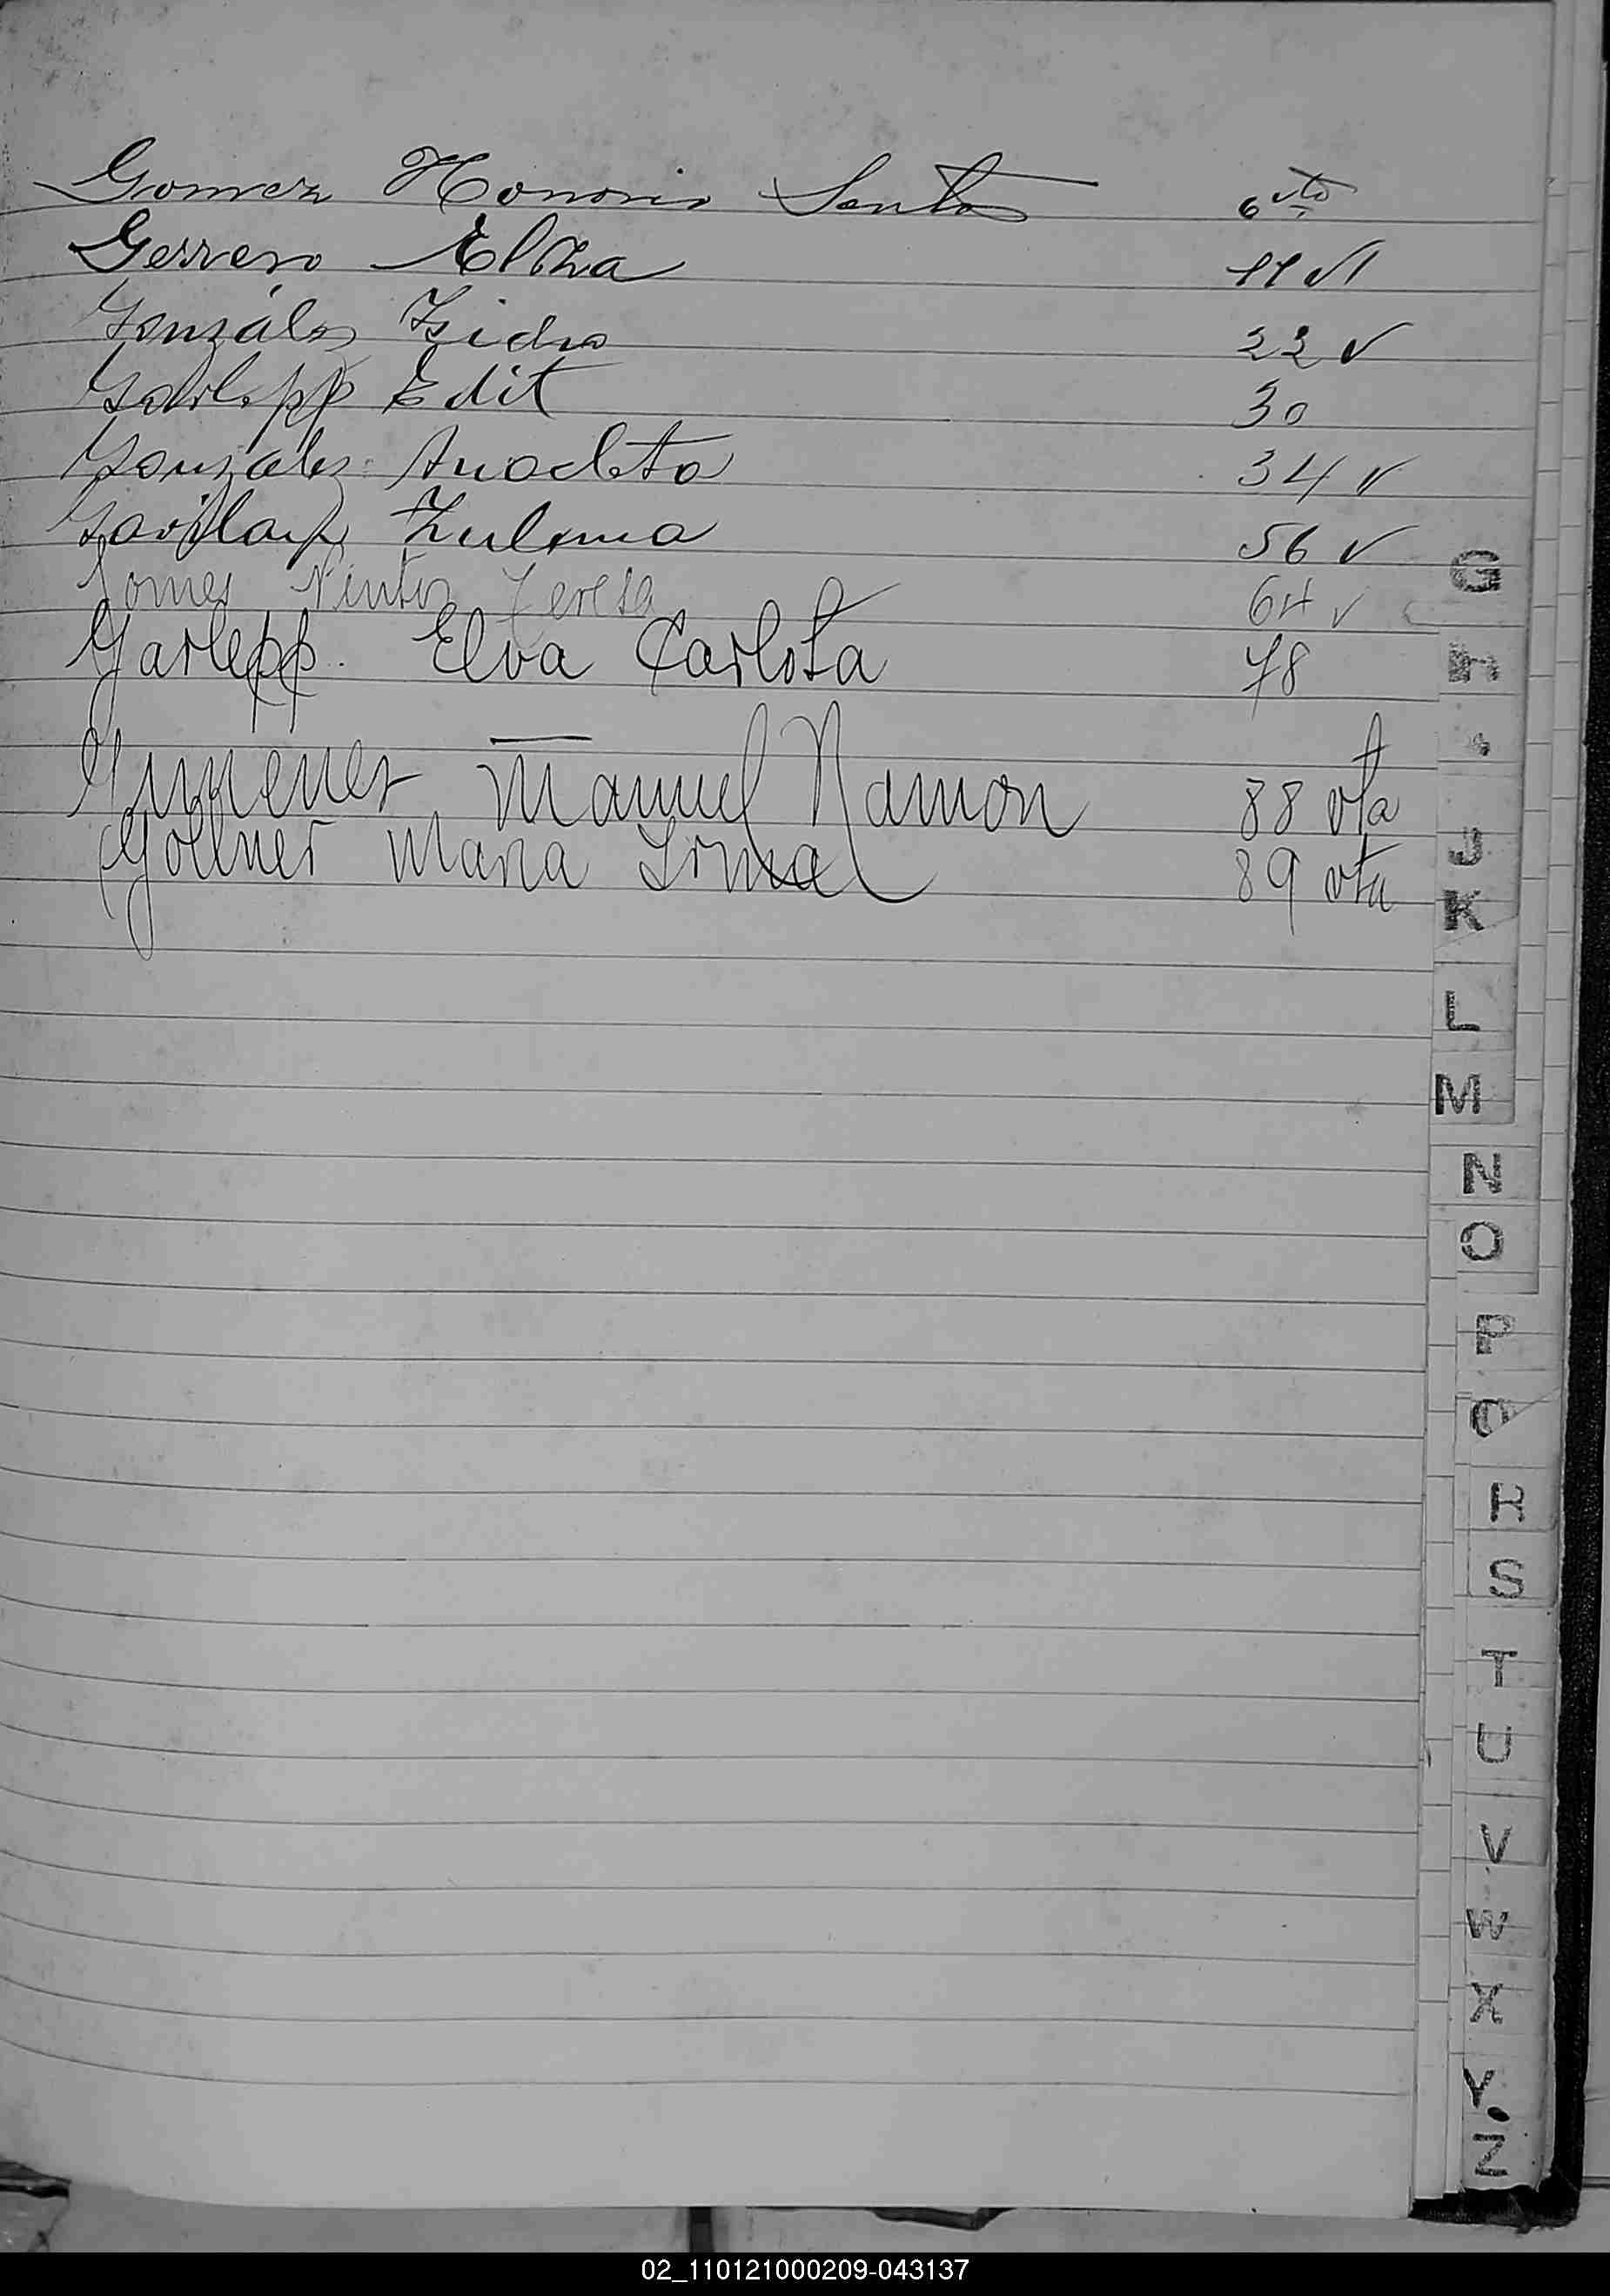 Gomez Honorio Santos 6 vto
Gerrero Elisa 11 v
Gonzáles Isidro 22 v
Garlepp Edit 30
Gonzales Anacleto 34 v
Zulema 56 v
Gomes Teresa 64 v
Garlepp. Elva Carlota 78
Gimenez Manuel Ramon 88 vta
Gollner Maria Irma 89 vta
G
H
I
J
K
L
M
N
O
P
Q
R
S
T
U
V
W
X
Y.
Z
02_110121000209-043137